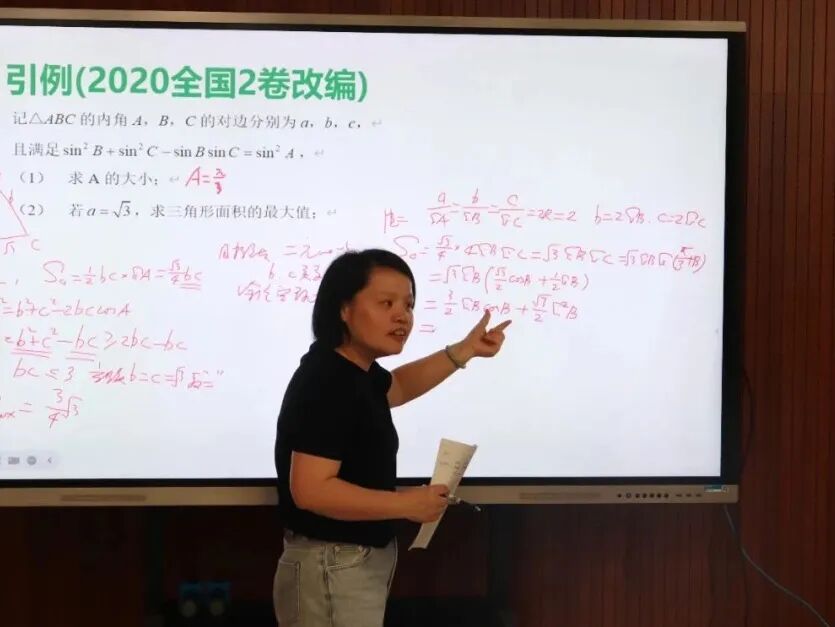 引例(2020全国2卷改编)
记△ABC 的内角 A，B，C 的对边分别为 a，b，c，
且满足 sin² B + sin² C − sin B sin C = sin² A，
（1） 求 A 的大小； A = π/3
（2） 若 a = √3，求三角形面积的最大值；
C
S△ = 1/2 bc × sA = √3/4 bc
b² + c² − 2bc cosA
= b² + c² − bc ≥ 2bc − bc
bc ≤ 3 b = c = √3 "="
= 3/4 √3
a/sA = b/sB = c/sC = 2R = 2 b = 2sB. c = 2sC
S△ = √3/4 × 4sBsC = √3 sBsC = √3 sBs(π/3+B)
= √3 sB(√3/2 cosB + 1/2 sB)
= 3/2 sB cosB + √3/2 s²B
=